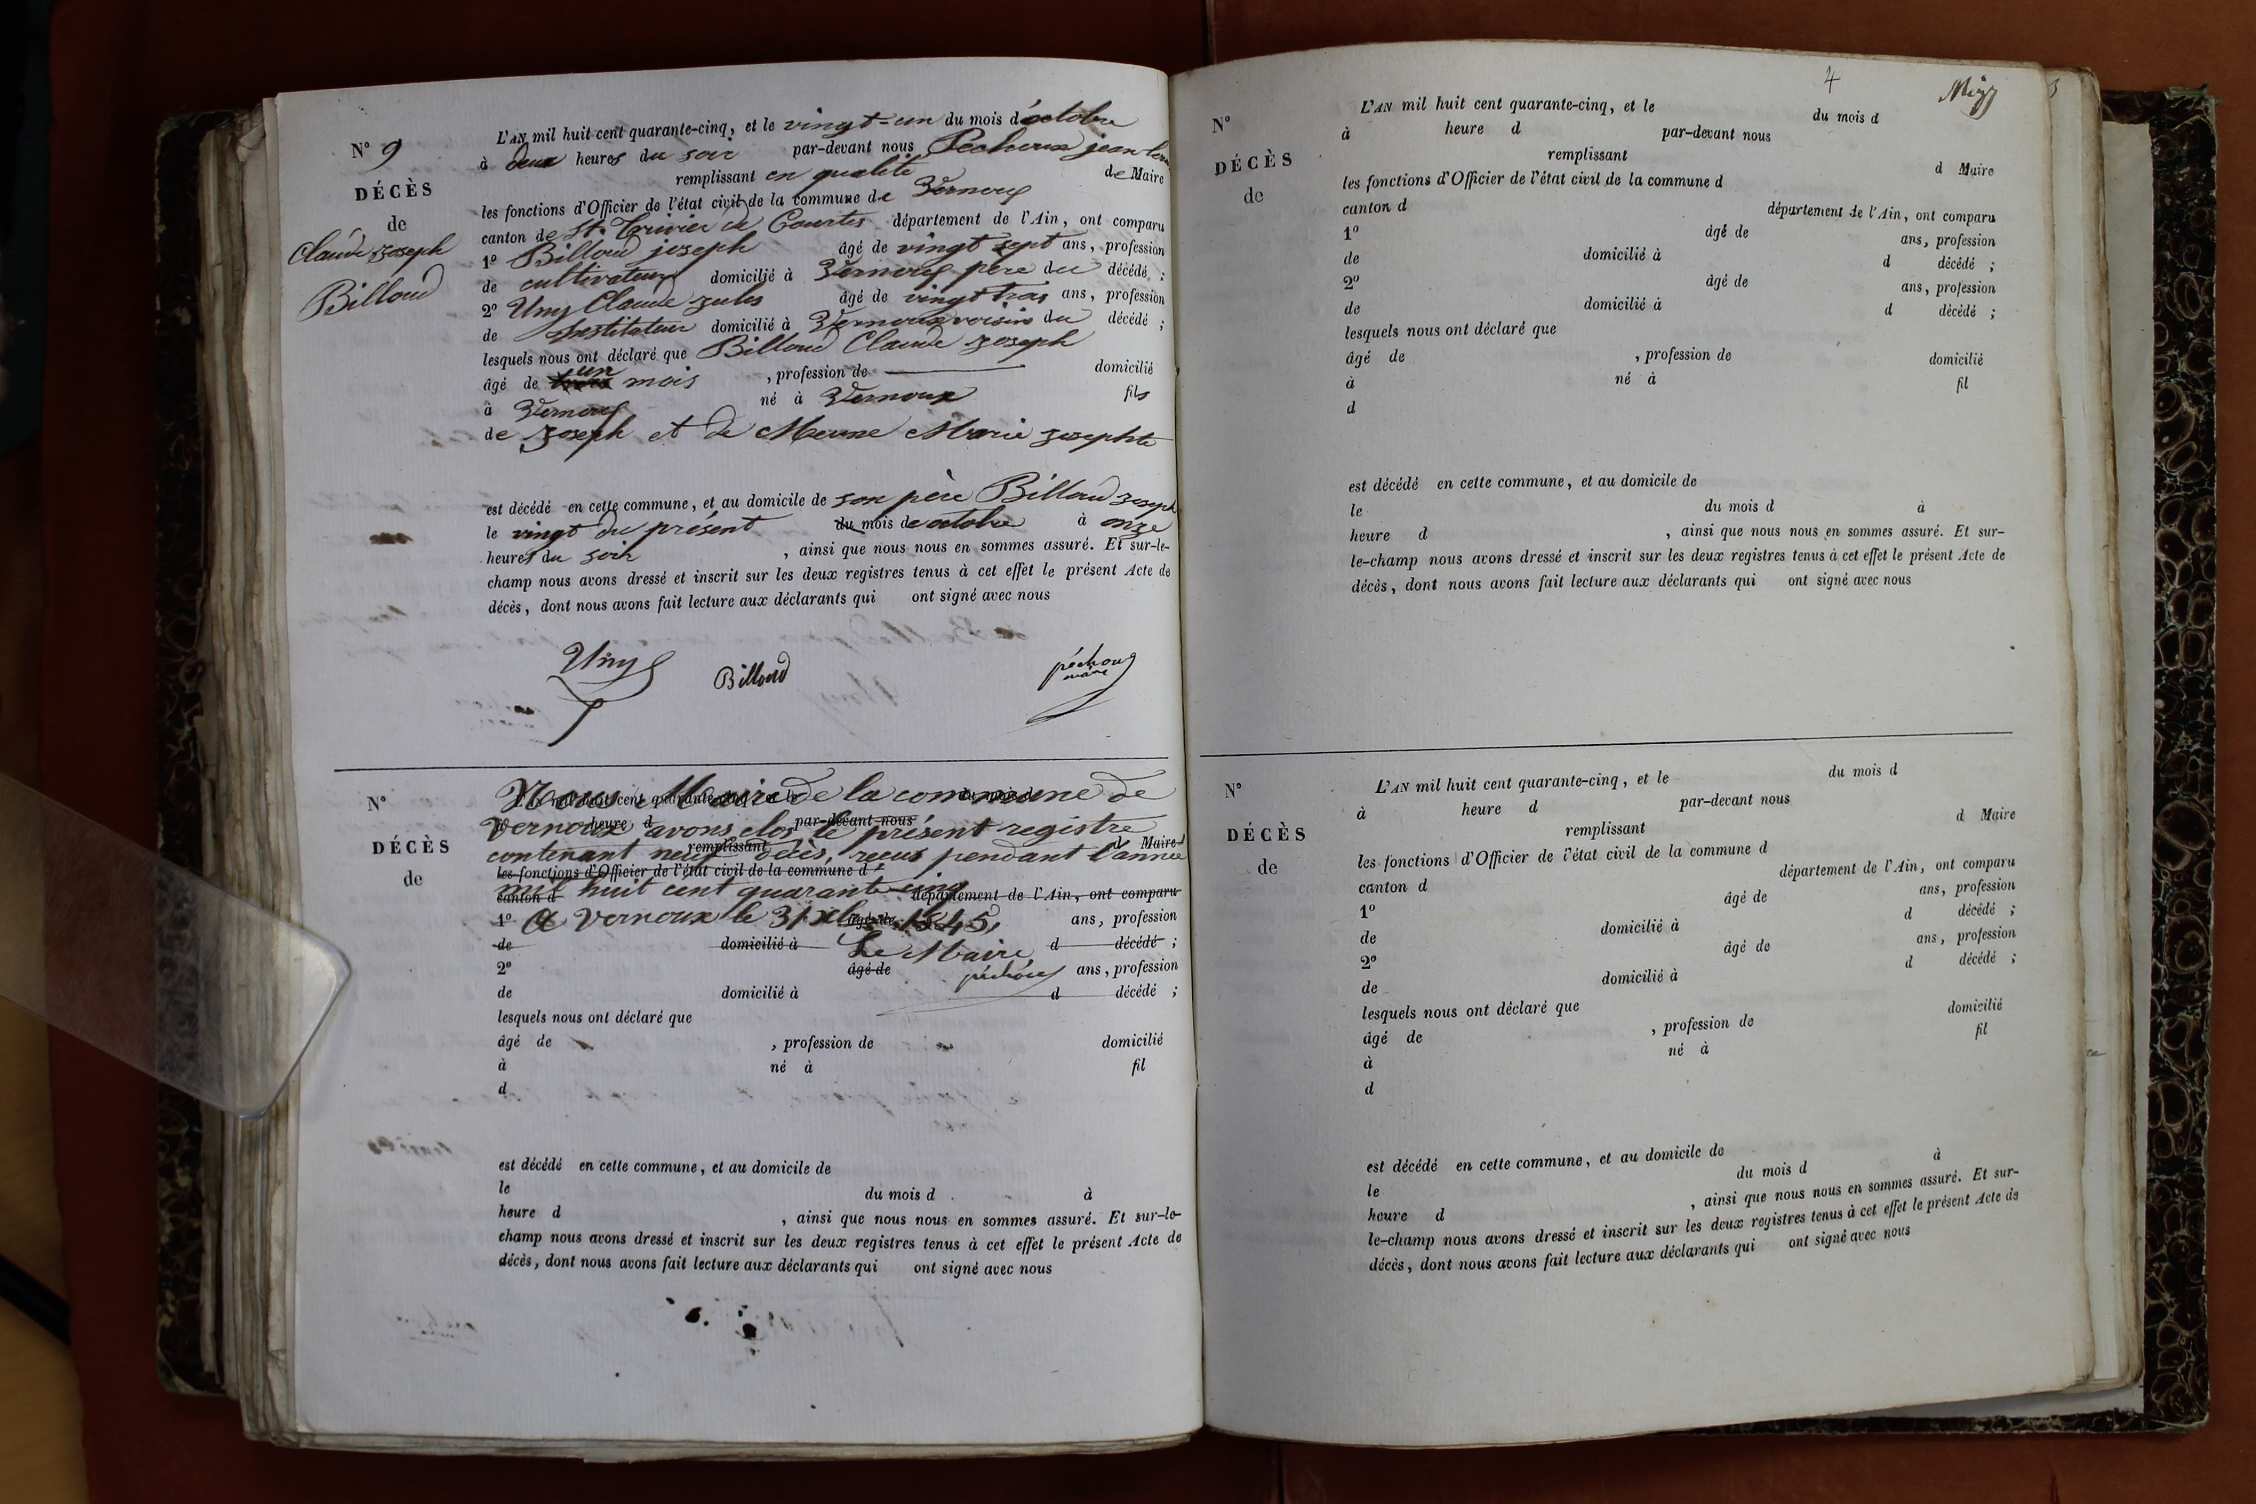 N° 9
DÉCÈS
de
Claude Joseph
Billoud
L'AN mil huit cent quarante-cinq, et le vingt-un du mois d'octobre
à deux heures du soir par-devant nous Pechoux jean
remplissant en qualité de Maire
les fonctions d'Officier de l'état civil de la commune de Vernoux
canton de St. Trivier de Courtes département de l'Ain, ont comparu
1° Billoud joseph âgé de vingt sept ans, profession
de cultivateur domicilié à Vernoux père du décédé ;
2° Uny Claude Jules âgé de vingt trois ans, profession
de Institateur domicilié à Vernoux voisin du décédé ;
lesquels nous ont déclaré que Billoud Claude Joseph
âgé de un mois , profession de domicilié
à Vernoux né à Vernoux fils
de Joseph et de Meune Marie Josephte
est décédé en cette commune, et au domicile de son père Billoud Joseph
le vingt du présent du mois de octobre à onze
heures du soir , ainsi que nous nous en sommes assuré. Et sur-le-
champ nous avons dressé et inscrit sur les deux registres tenus à cet effet le présent Acte de
décès, dont nous avons fait lecture aux déclarants qui ont signé avec nous
Uny Billoud péchoux
maire
N°
DÉCÈS
de
Nous Maire de la commune de
Vernoux avons clos le présent registre
contenant neuf décès, reçus pendant l'année
mil huit cent quarante-cinq
A Vernoux le 31 Xbre 1845,
Le Maire
péchoux
L'AN mil huit cent quarante-cinq, et le du mois d
à heure d par-devant nous
remplissant d Maire
les fonctions d'Officier de l'état civil de la commune d
canton d département de l'Ain, ont comparu
1° âgé de ans, profession
de domicilié à d décédé ;
2° âgé de ans, profession
de domicilié à d décédé ;
lesquels nous ont déclaré que
âgé de , profession de domicilié
à né à fil
d
est décédé en cette commune, et au domicile de
le du mois d à
heure d , ainsi que nous nous en sommes assuré. Et sur-le-
champ nous avons dressé et inscrit sur les deux registres tenus à cet effet le présent Acte de
décès, dont nous avons fait lecture aux déclarants qui ont signé avec nous
4
N°
DÉCÈS
de
L'AN mil huit cent quarante-cinq, et le du mois d
à heure d par-devant nous
remplissant d Maire
les fonctions d'Officier de l'état civil de la commune d
canton d département de l'Ain, ont comparu
1° âgé de ans, profession
de domicilié à d décédé ;
2° âgé de ans, profession
de domicilié à d décédé ;
lesquels nous ont déclaré que
âgé de , profession de domicilié
à né à fil
d
est décédé en cette commune, et au domicile de
le du mois d à
heure d , ainsi que nous nous en sommes assuré. Et sur-
le-champ nous avons dressé et inscrit sur les deux registres tenus à cet effet le présent Acte de
décès, dont nous avons fait lecture aux déclarants qui ont signé avec nous
N°
DÉCÈS
de
L'AN mil huit cent quarante-cinq, et le du mois d
à heure d par-devant nous
remplissant d Maire
les fonctions d'Officier de l'état civil de la commune d
canton d département de l'Ain, ont comparu
1° âgé de ans, profession
de domicilié à d décédé ;
2° âgé de ans, profession
de domicilié à d décédé ;
lesquels nous ont déclaré que
âgé de , profession de domicilié
à né à fil
d
est décédé en cette commune, et au domicile de
le du mois d à
heure d , ainsi que nous nous en sommes assuré. Et sur-
le-champ nous avons dressé et inscrit sur les deux registres tenus à cet effet le présent Acte de
décès, dont nous avons fait lecture aux déclarants qui ont signé avec nous